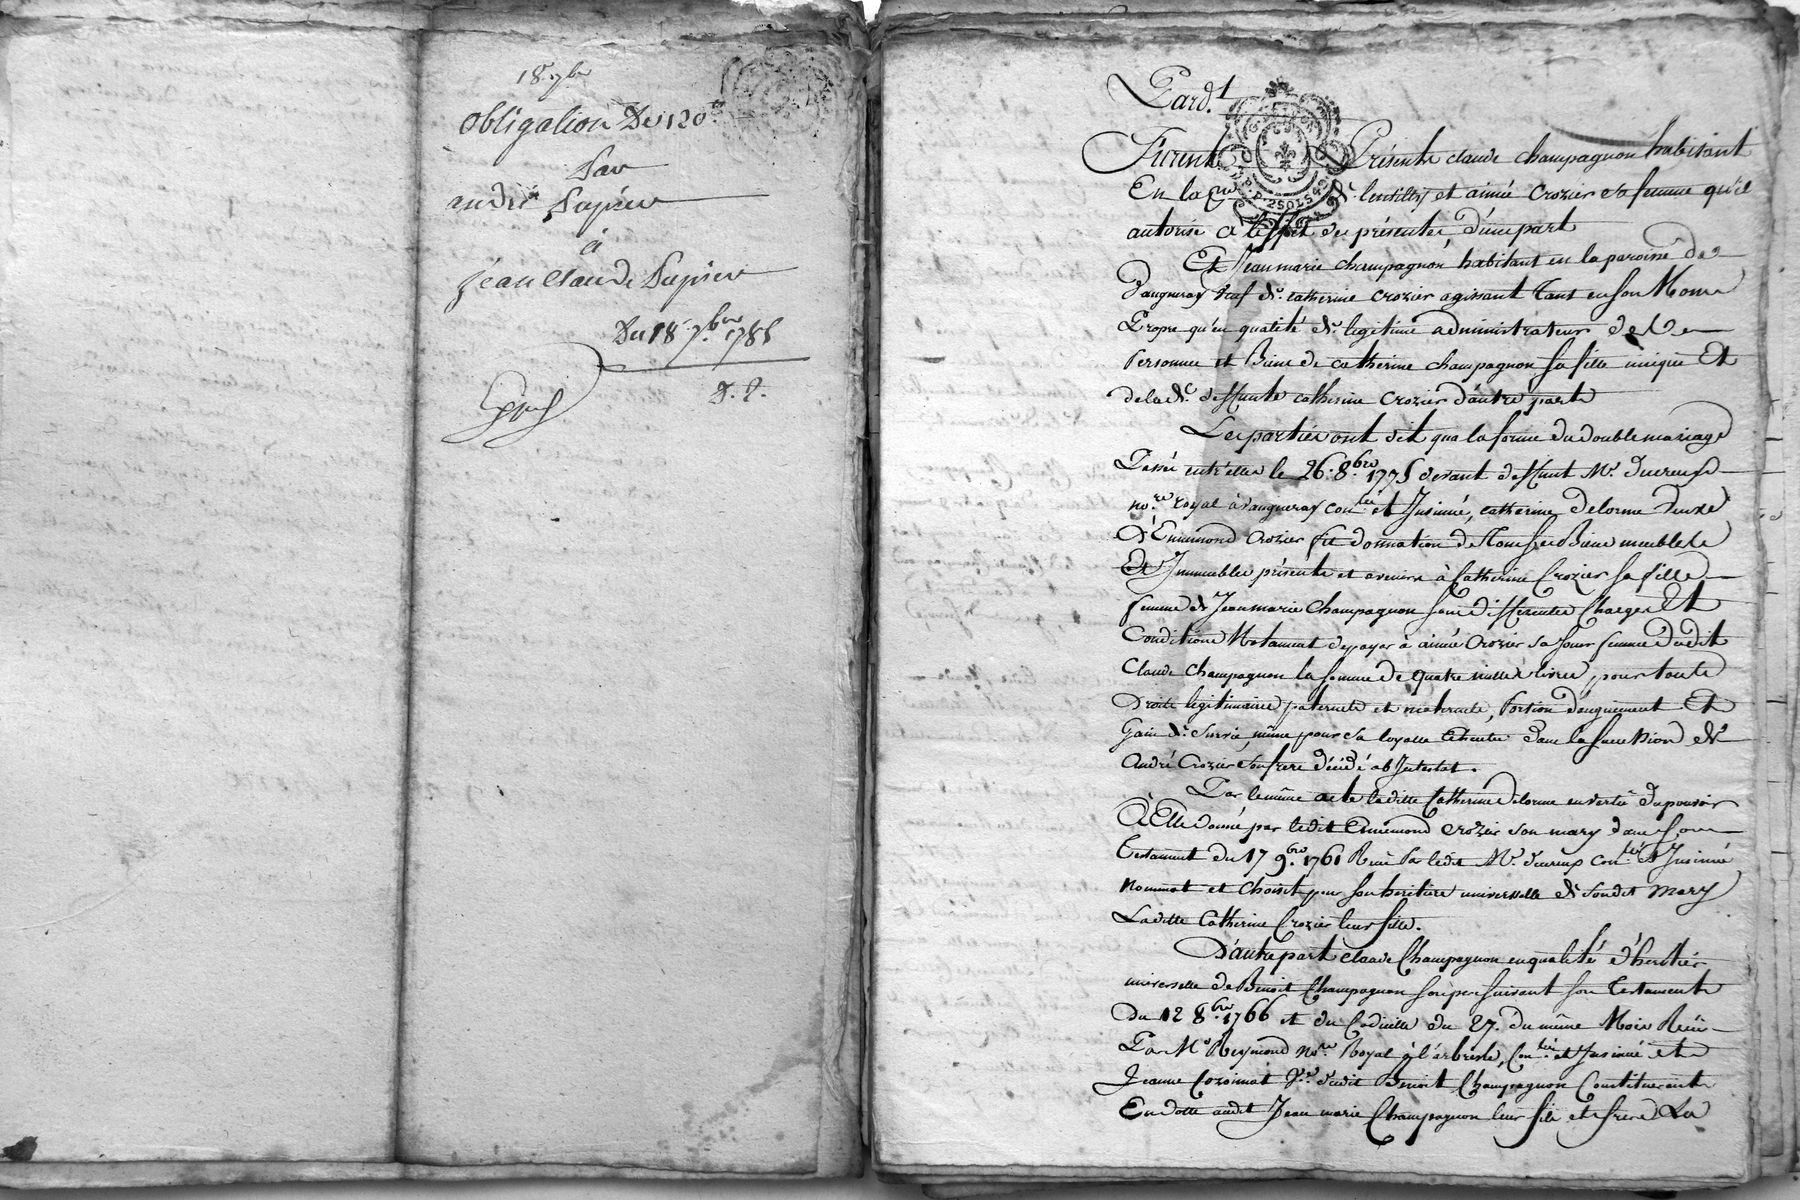 18 7bre
obligation De 120#
Par
andré Dupieu
à
jean Claude Dupieu
Du 18 7bre 1785
D. P.
Pard.t
Furent Présents claude champagnon habitant
En la lentilly et aimée Crozier sa femme qu'il
autorise a leffet des présentes d'une part
Et Jeanmarie champagnon habitant en la paroisse de
Vaugneray veuf de catherine crozier agissant Tant en son Nom
Propre qu'en qualité de legitime administrateur de la
Personne et Biens de catherine champagnon sa fille unique Et
de lad. deffunte catherine Crozier d'autre part
Les parties ont dit que la forme du double mariage
Passé entr'elles le 26. 8bre 1775 devant deffunt Me. ducreux
nore. royal à Vaugneray con.lé et Insinué, catherine delorme veuve
d'Ennemond Crozier fit donnation de Tous ses Biens meubles
Et Immeubles présents et avenirs à Catherine Crozier sa fille
femme de Jeanmarie Champagnon sous differentes Charges Et
Conditions Notament de payer à aimée Crozier sa sœur femme dudit
Claude Champagnon la somme de quatre mille livres, pour touts
Droits légitimaires paternels et maternels, Portion d'augment Et
Gain de Survie, même pour sa loyalle dans la succession de
André Crozier son frere décédé ab Intestat.
Par le même acte ladite Catherine delorme en vertu du pouvoir
à Elle donné par ledit Ennemond Crozier son mary dans son
Testament du 17 9bre. 1761 Reçu Par ledit Me. ducreux con.lé et Insinué
Nommat et Choisit pour son heritiere universelle de sondit Mary
Ladite Catherine Crozier leur fille.
D'autre part claude Champagnon en qualité d'heritier
universelle de Benoit Champagnon son pere suivant son Testament
Du 12 8bre. 1766 et du Codicille du 27. du même Mois Reçu
Par Me Reymond nore. Royal à l'arbresle, Con.lé et Insinué et
Jeanne dudit Benoit Champagnon Constituerent
En dotte audit Jean marie Champagnon leur fils et frere La